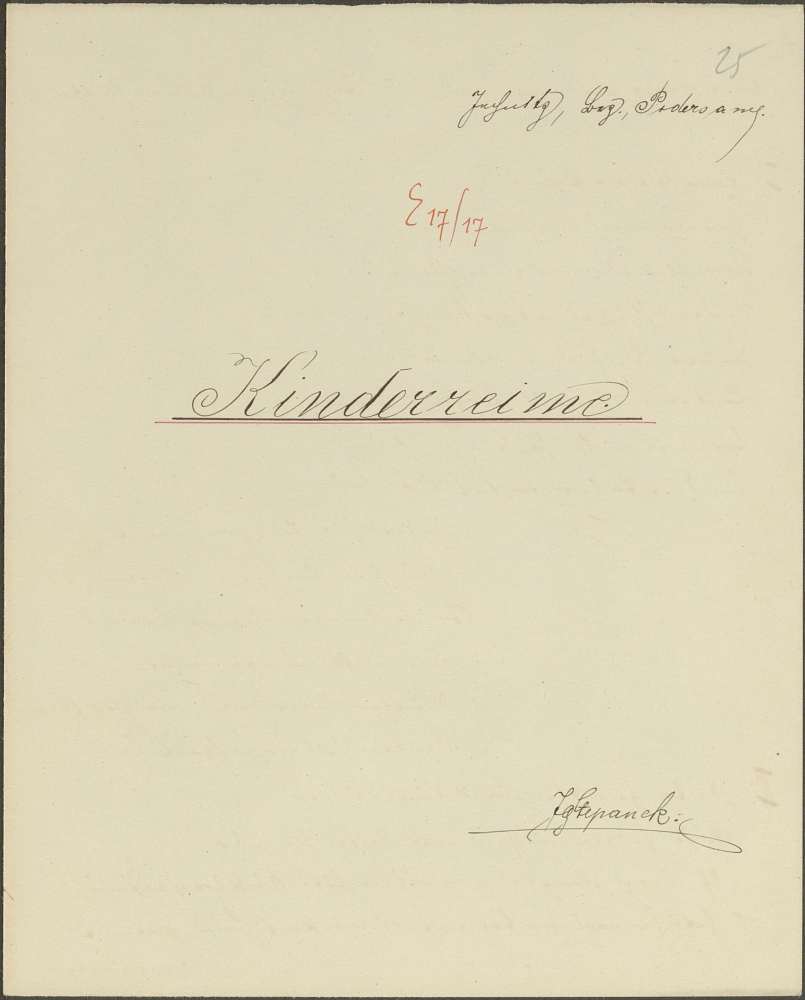 25
Jechnitz, Bez., Podersam.
E 17/17
Kinderreime.
Stepanek